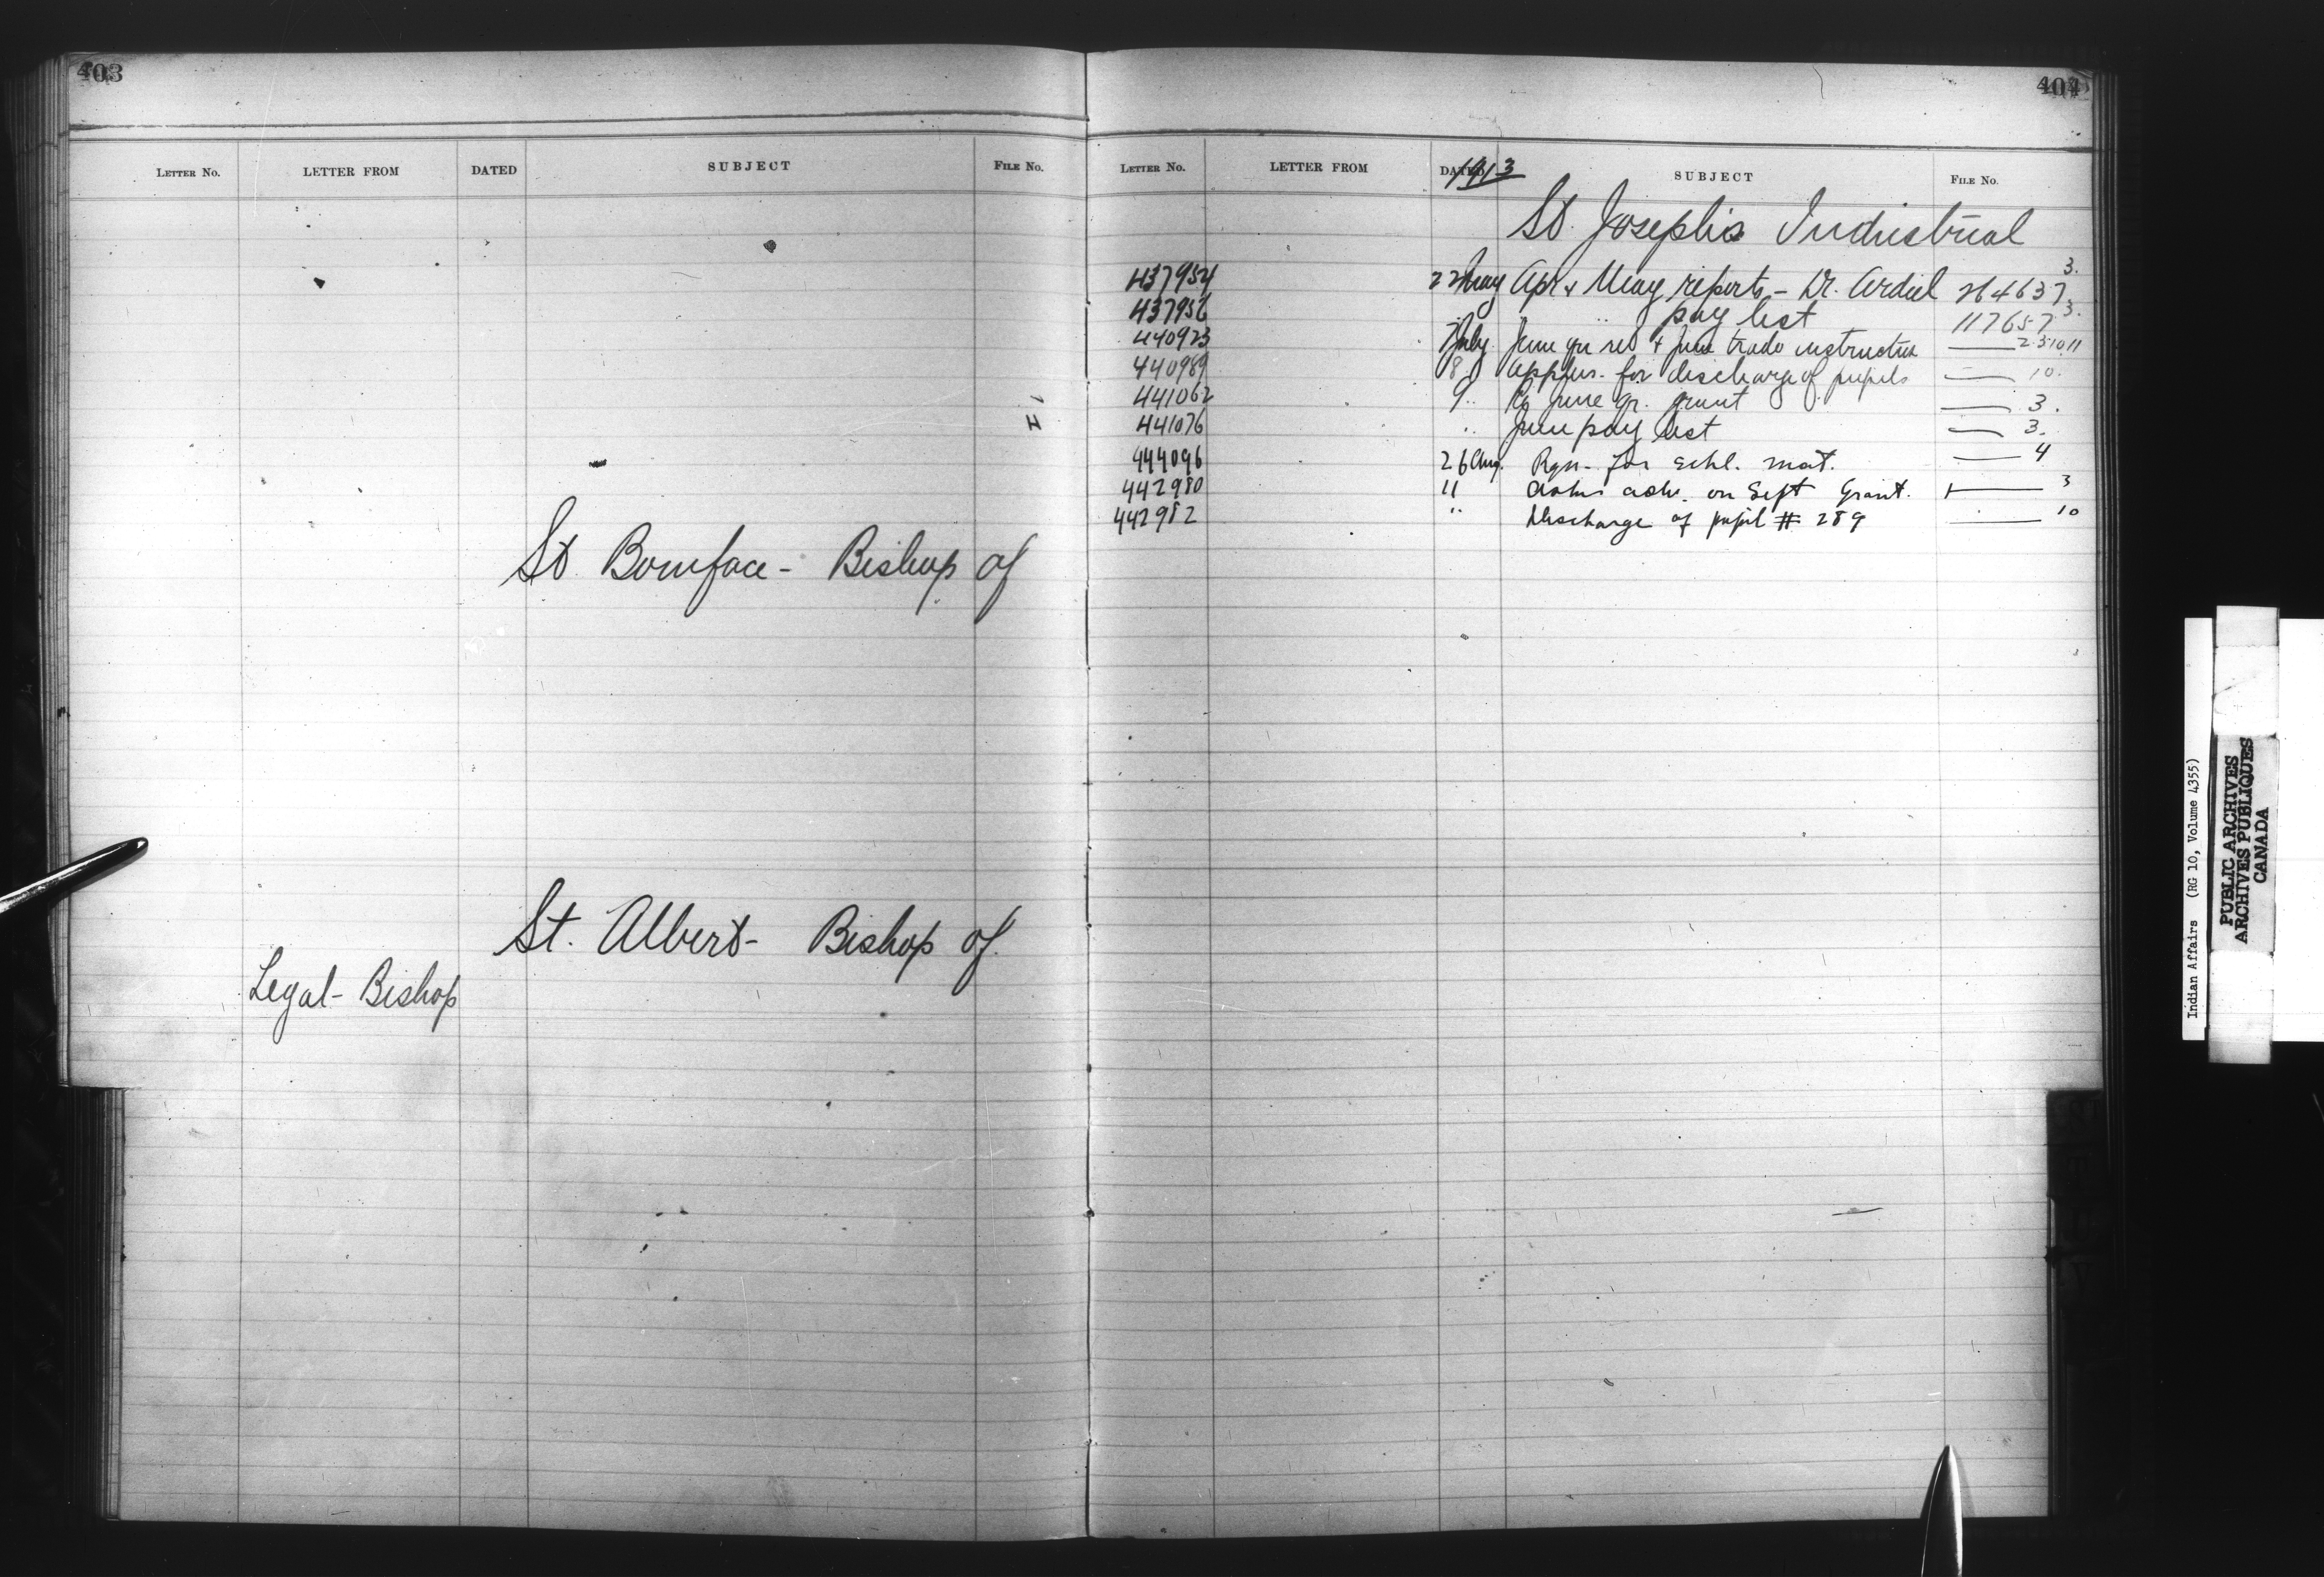 403
LETTER NO. LETTER FROM DATED SUBJECT FILE No.
St. Boniface - Bishop of
St. Albert - Bishop of.
Legal - Bishop
404
LETTER No. LETTER FROM DATED 1913 SUBJECT FILE No.
St. Joseph's Industrial
437954 22 May Apr & May reports - Dr. Ardiel 264637 3.
437956 " " pay list 117657 3.
440923 7 July June qr ret & June trade instruction — 2.3.10.11
440989 8 " Appns. for discharge of pupils — 10.
441062 9 " June qr. grant — 3.
441076 " June pay list — 3.
444096 26 Aug. Rqn. for schl. mat. — 4
442980 11 adv. on Sept Grant. — 3
442982 " Discharge of pupil # 289 — 10
Indian Affairs (RG 10, Volume 4355)
PUBLIC ARCHIVES
ARCHIVES PUBLIQUES
CANADA